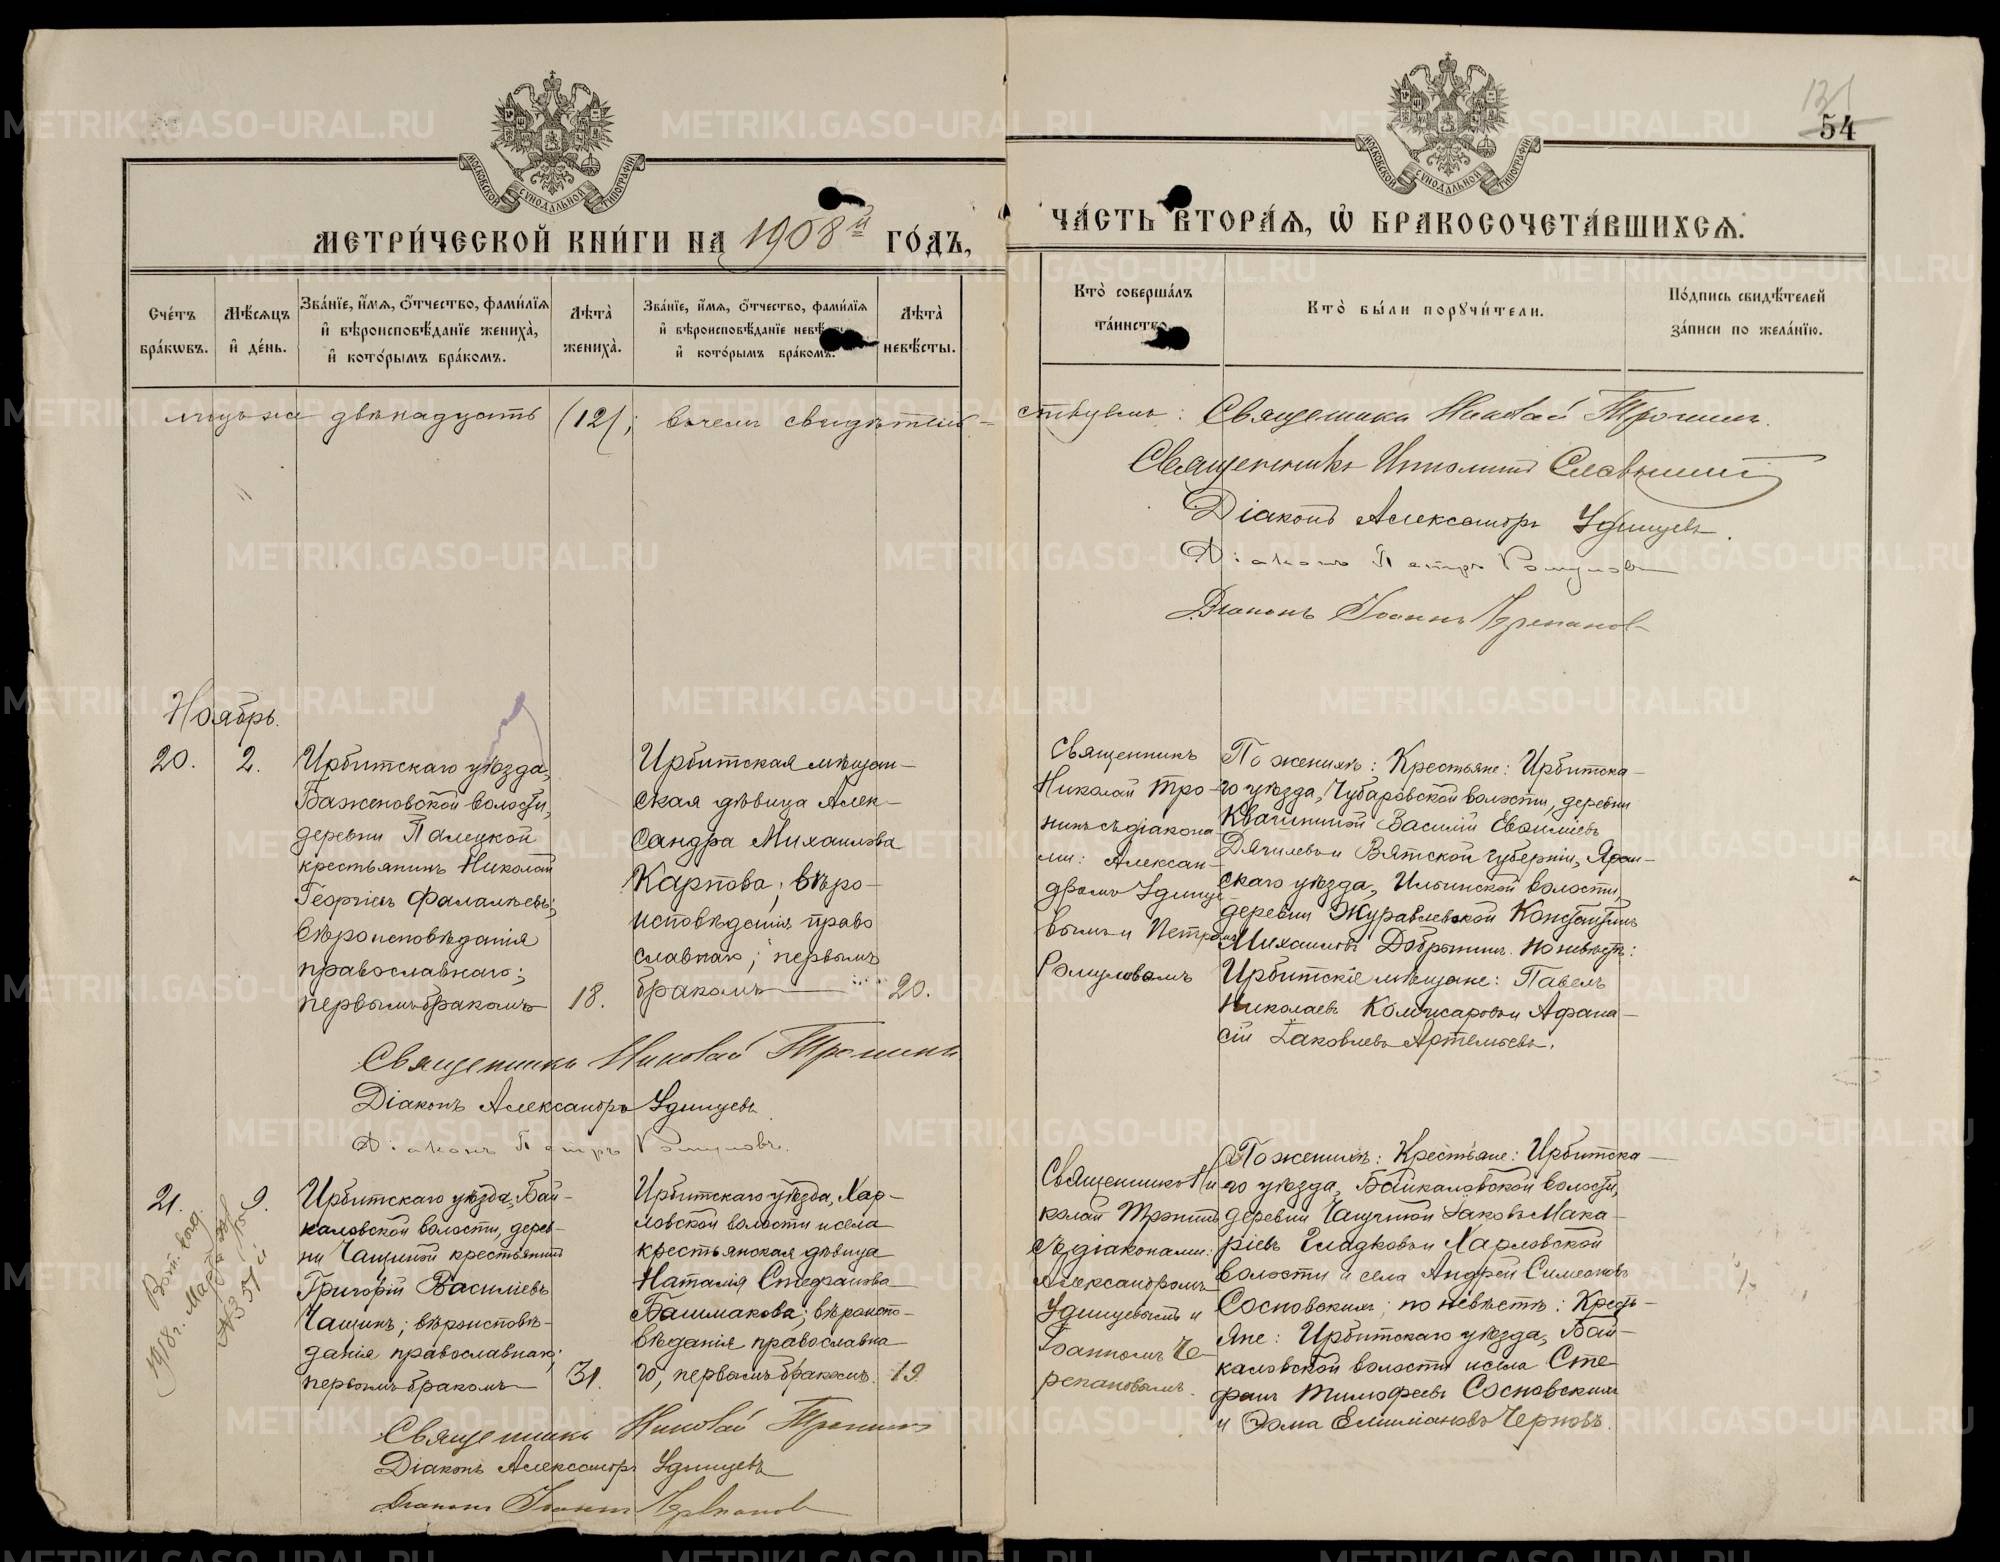 131
54
МОСКОВСКОЙ СУНОДАЛЬНОЙ ТИПОГРАФІИ
МОСКОВСКОЙ СУНОДАЛЬНОЙ ТИПОГРАФІИ
МЕТРИЧЕСКОЙ КНИГИ НА 1908й ГОДЪ,
ЧАСТЬ ВТОРАЯ, Ѡ БРАКОСОЧЕТАВШИХСЯ.
Счетъ браковъ.
Мѣсяцъ и день.
Званіе, имя, отчество, фамилія и вѣроисповѣданіе жениха, и которымъ бракомъ.
Лѣта жениха.
Званіе, имя, отчество, фамилія и вѣроисповѣданіе невѣсты, и которымъ бракомъ.
Лѣта невѣсты.
Кто совершалъ таинство.
Кто были поручители.
Подпись свидѣтелей записи по желанію.
двѣнадцать (12); въ чемъ свидѣтель-
ствуемъ: Священникъ Николай Тронинъ.
Священникъ Ипполитъ Славнинъ
Діаконъ Александръ Удинцевъ.
Діаконъ Петръ Ромуловъ
Діаконъ Іоаннъ Черепановъ
Ноябрь.
20.
2.
Ирбитскаго уѣзда,
Баженовской волости,
деревни Палецкой
крестьянинъ Николай
Георгіевъ Фалалѣевъ;
вѣроисповѣданія
православнаго;
первымъ бракомъ
18.
Ирбитская мѣщан-
ская дѣвица Алек-
сандра Михаилова
Карпова; вѣро-
исповѣданія право
славнаго; первымъ
бракомъ
20.
Священникъ
Николай Тро-
нинъ съ діакона
ми: Алексан-
дромъ Удинце-
вымъ и Петромъ
Ромуловымъ
По женихѣ: Крестьяне: Ирбитска-
го уѣзда, Чубаровской волости, деревни
Квашниной Василій Евѳиміевъ
Дягилевъ и Вятской губерніи, Яран-
скаго уѣзда, Ильинской волости,
деревни Журавлевской Константинъ
Михаиловъ Добрынинъ. По невѣстѣ:
Ирбитскіе мѣщане: Павелъ
Николаевъ Комисаровъ и Афана-
сій Іаковлевъ Артемьевъ.
Священникъ Николай Тронинъ
Діаконъ Александръ Удинцевъ
Діаконъ Петръ Ромуловъ.
21.
9.
1918 г. Марта
№ 351й
Ирбитскаго уѣзда, Бай-
каловской волости, дерев-
ни Чащиной крестьянинъ
Григорій Василіевъ
Чащинъ; вѣроисповѣ-
данія православнаго;
первымъ бракомъ
31.
Ирбитскаго уѣзда, Хар-
ловской волости и села
крестьянская дѣвица
Наталія Стефанова
Башмакова; вѣроиспо-
вѣданія православна
го; первымъ бракомъ.
19.
Священникъ Ни
колай Тронинъ
съ діаконами:
Александромъ
Удинцевымъ и
Іоанномъ Че-
репановымъ.
По женихѣ: Крестьяне: Ирбитска-
го уѣзда, Байкаловской волости,
деревни Чащиной Іаковъ Мака-
ріевъ Гладковъ и Харловской
волости и села Андрей Симеоновъ
Сосновскихъ; по невѣстѣ: Кресть-
яне: Ирбитскаго уѣзда, Бай-
каловской волости и села Сте
фанъ Тимофеевъ Сосновскихъ
и Ѳома Емиліановъ Черновъ.
Священникъ Николай Тронинъ
Діаконъ Александръ Удинцевъ
Діаконъ Іоаннъ Черепановъ
METRIKI.GASO-URAL.RU